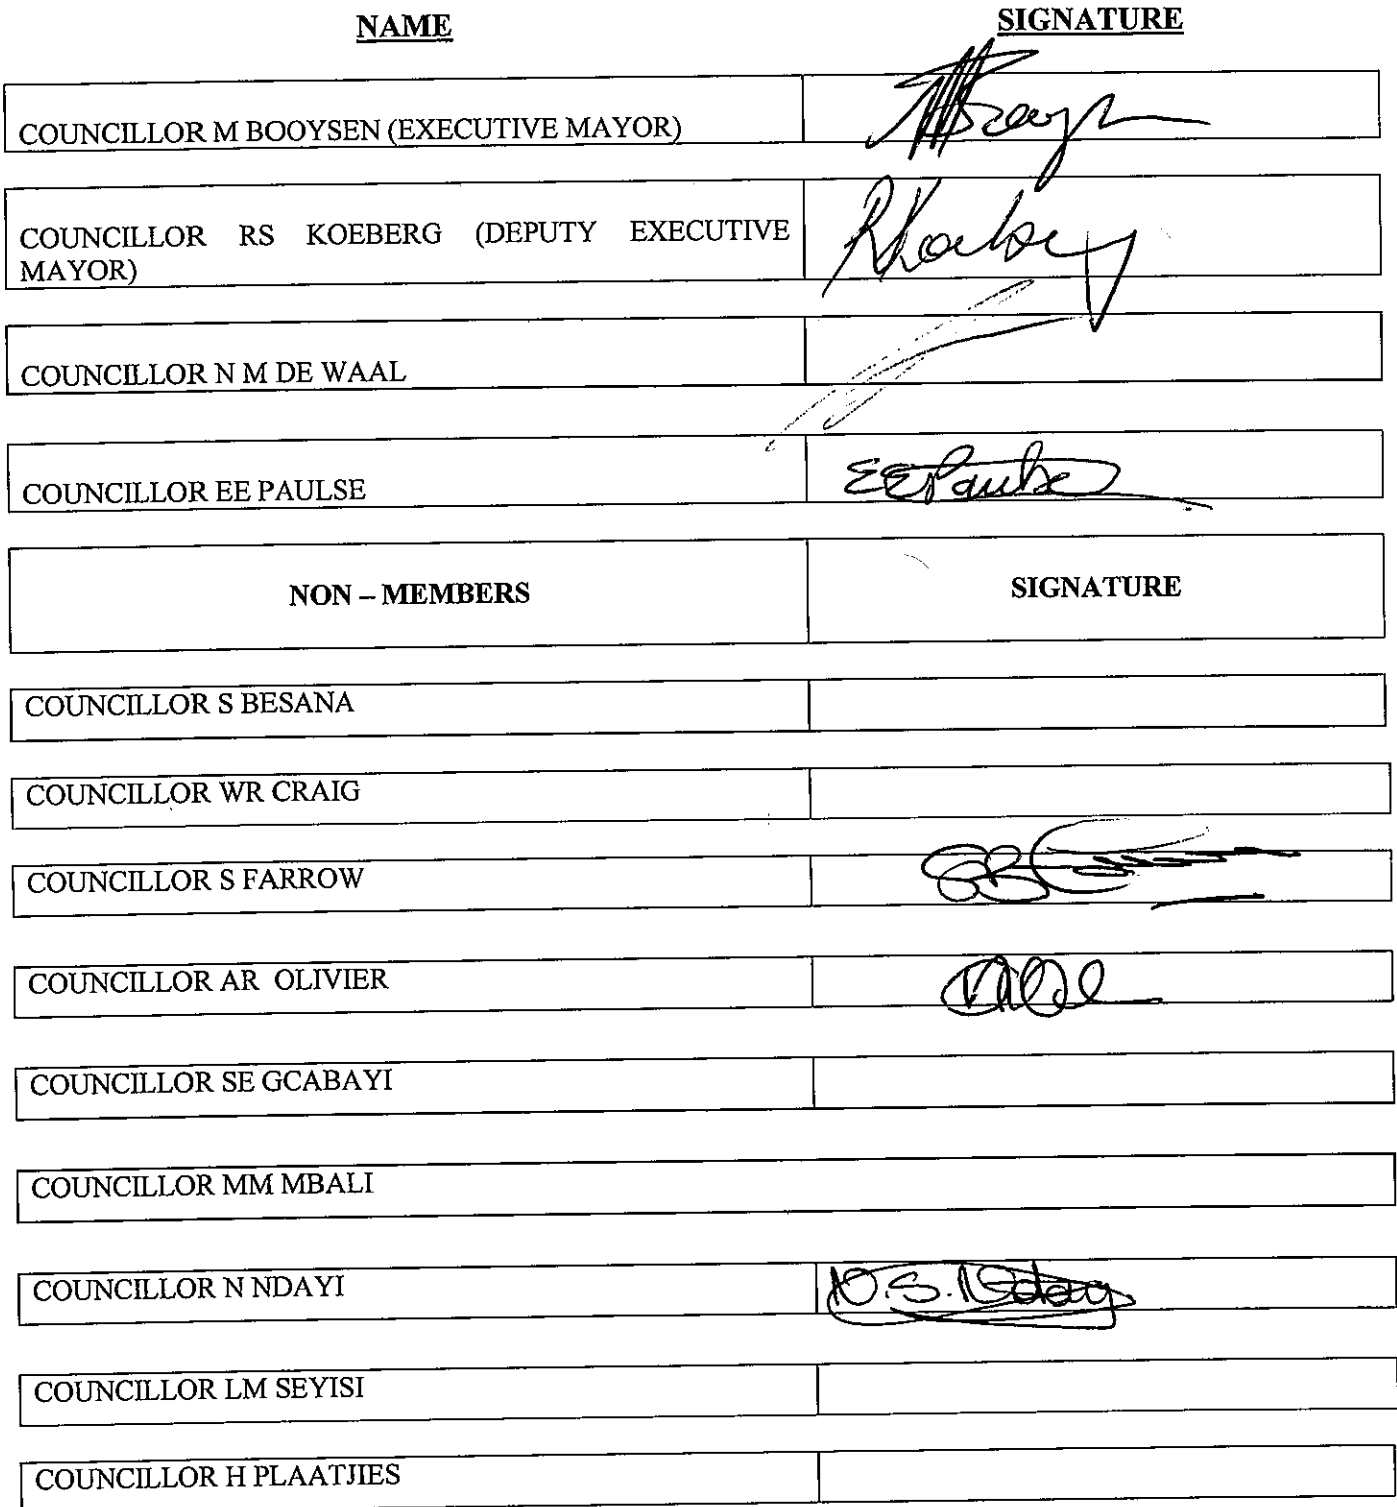 NAME SIGNATURE
COUNCILLOR M BOOYSEN (EXECUTIVE MAYOR)
COUNCILLOR RS KOEBERG (DEPUTY EXECUTIVE
MAYOR)
COUNCILLOR N M DE WAAL
COUNCILLOR EE PAULSE EEPaulse
NON – MEMBERS SIGNATURE
COUNCILLOR S BESANA
COUNCILLOR WR CRAIG
COUNCILLOR S FARROW
COUNCILLOR AR OLIVIER
COUNCILLOR SE GCABAYI
COUNCILLOR MM MBALI
COUNCILLOR N NDAYI N.S. Nday
COUNCILLOR LM SEYISI
COUNCILLOR H PLAATJIES